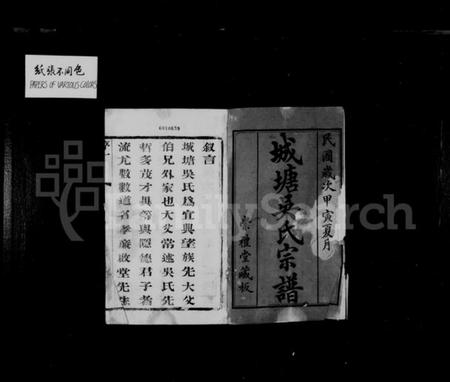 紙張不同色
PAPERS OF VARIOUS COLORS
6010859
民國歲次甲寅夏月
城塘吳氏宗譜
崇禮堂藏板
叙言
城塘吳氏爲宜興望族先大父
伯兄外家也大父常述吳氏先
哲多茂才異等與隱德君子者
流尤數數道名孝廉啟堂先生
FamilySearch